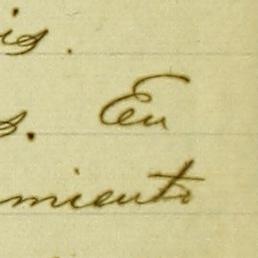 is.
s. En
miento